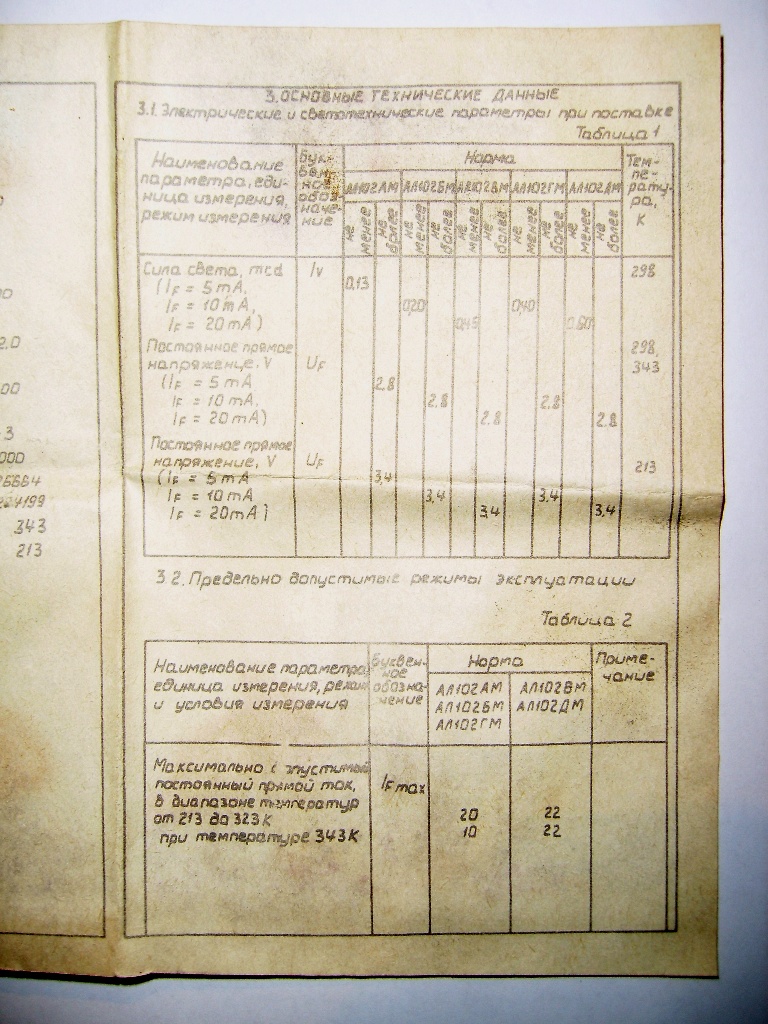 00
2.0
00
3
000
343
213
3. ОСНОВНЫЕ ТЕХНИЧЕСКИЕ ДАННЫЕ
3.1. Электрические и светотехнические параметры при поставке
Таблица 1
Наименование параметра, еди-
ница измерения,
режим измерения
Бук-
вен-
ное
обоз-
наче-
ние
Норма
Тем-
пе-
рату-
ра,
К
АЛ102АМ АЛ102БМ АЛ102ВМ АЛ102ГМ АЛ102ДМ
не менее не более не менее не более не менее не более не менее не более не менее не более
Сила света, mcd Iv 298
(IF = 5 mA, 0,13
IF = 10 mA, 0,20 0,40
IF = 20 mA) 0,45 0,60
Постоянное прямое 298,
напряжение, V UF 343
(IF = 5 mA 2.8
IF = 10 mA, 2.8 2.8
IF = 20 mA) 2.8 2.8
Постоянное прямое
напряжение, V UF 213
(IF = 5 mA 3,4
IF = 10 mA 3,4 3,4
IF = 20 mA) 3,4 3,4
3.2. Предельно допустимые режимы эксплуатации
Таблица 2
Наименование параметра,
единица измерения, режим
и условия измерения
Буквен-
ное
обозна-
чение
Норма
АЛ102АМ АЛ102ВМ
АЛ102БМ АЛ102ДМ
АЛ102ГМ
Приме-
чание
Максимально допустимый
постоянный прямой ток, IF max
в диапазоне температур
от 213 до 323 К 20 22
при температуре 343 К 10 22